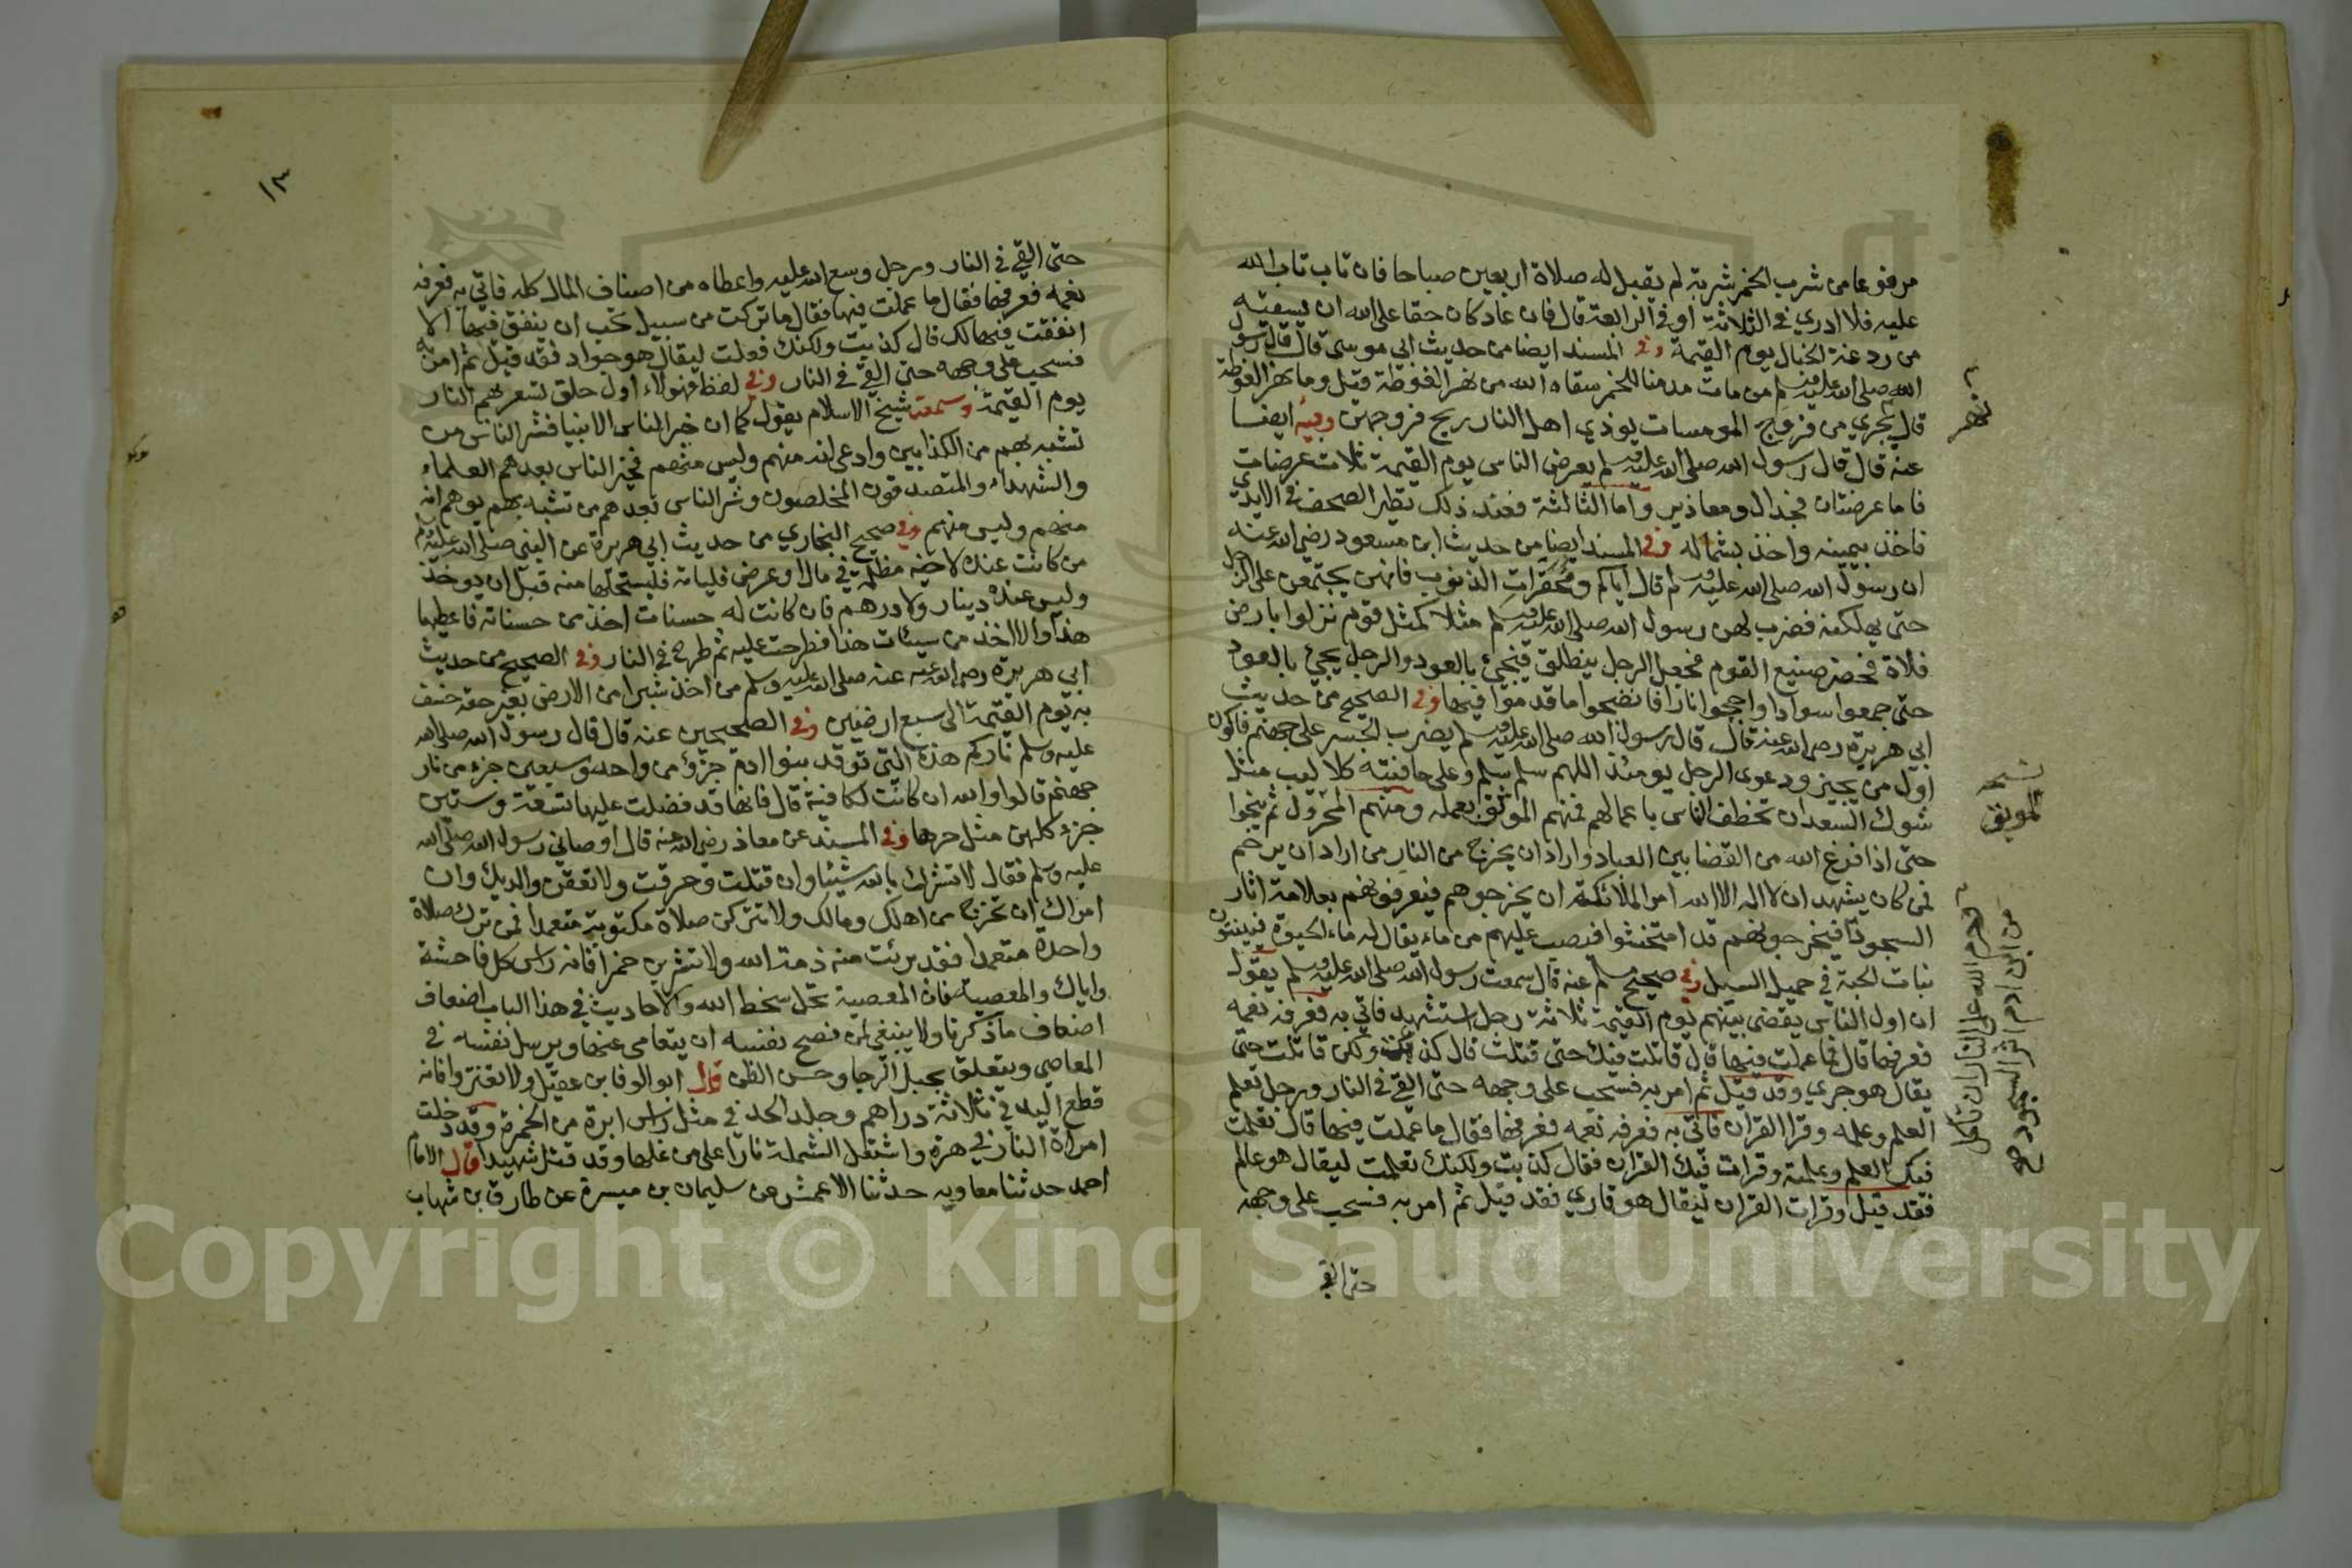 مرفوعا من شرب الخمر شربة لم يقبل له صلاة اربعين صباحا فان تاب تاب الله
عليه فلا ادري في الثلاثة او في الرابعة قال فان عاد كان حقا على الله ان يسقيه
من ردغة الخبال يوم القيمة وفي المسند ايضا من حديث ابي موسى قال قال رسول
الله صلى الله عليه وسلم من مات مدمنا للخمر سقاه الله من نهر الغوطة قيل وما نهر الغوطة
قال يجري من فروج المومسات يوذي اهل النار ريح فروجهن وفيه ايضا
عنه قال قال رسول الله صلى الله عليه وسلم يعرض الناس يوم القيمة ثلاث عرضات
فاما عرضتان فجدال ومعاذير واما الثالثة فعند ذلك تطير الصحف في الايدي
فاخذ بيمينه واخذ بشماله وفي المسند ايضا من حديث ابن مسعود رضي الله عنه
ان رسول الله صلى الله عليه وسلم قال اياكم ومحقرات الذنوب فانهن يجتمعن على الرجل
حتى يهلكنه فضرب لهن رسول الله صلى الله عليه وسلم مثلا كمثل قوم نزلوا بارض
فلاة فحضر صنيع القوم فجعل الرجل ينطلق فيجئ بالعود والرجل يجئ بالعود
حتى جمعوا سوادا واججوا نارا فانضجوا ما قدموا فيها وفي الصحيح من حديث
ابي هريرة رضي الله عنه قال قال رسول الله صلى الله عليه وسلم يضرب الجسر على جهنم فاكون
اول من يجيز ودعوى الرجل يومئذ اللهم سلم سلم وعلى حافتيه كلاليب مثل
شوك السعدان تخطف الناس باعمالهم فمنهم الموثق بعمله ومنهم المخردل ثم ينجوا
حتى اذا فرغ الله من القضا بين العباد واراد ان يخرج من النار من اراد ان يرحم
فمن كان يشهد ان لا اله الا الله امر الملائكة ان يخرجوهم فيعرفونهم بعلامة اثار
السجود فيخرجونهم قد امتحشوا فيصب عليهم من ماء يقال له ماء الحيوة فينبتون
نبات الحبة في حميل السيل وفي صحيح مسلم عنه قال سمعت رسول الله صلى الله عليه وسلم يقول
ان اول الناس يقضى بينهم يوم القيمة ثلاثة رجل استشهد فاتي به فعرفه نعمه
فعرفها قال فما عملت فيها قال قاتلت فيك حتى قتلت قال كذبت ولكن قاتلت حتى
يقال هو جري وقد قيل ثم امر به فسحب على وجهه حتى القي في النار ورجل تعلم
العلم وعلمه وقرا القران فاتي به فعرفه نعمه فعرفها فقال ما عملت فيها قال تعلمت
فيك العلم وعلمته وقرات فيك القران فقال كذبت ولكنك تعلمت ليقال هو عالم
فقد قيل وقرات القران ليقال هو قاري فقد قيل ثم امر به فسحب على وجهه
حتى القي
نهر
نسخة
الموبق
وحرم الله على النار ان تاكل
من ابن ادم اثر السجود صح
١٣
حتى القي في النار ورجل وسع الله عليه واعطاه من اصناف المال كله فاتي به فعرفه
نعمه فعرفها فقال ما عملت فيها فقال ما تركت من سبيل تحب ان ينفق فيها الا
انفقت فيها لك قال كذبت ولكنك فعلت ليقال هو جواد فقد قيل ثم امر به
فسحب على وجهه حتى القي في النار وفي لفظ فهولاء اول خلق تسعر بهم النار
يوم القيمة وسمعت شيخ الاسلام يقول كما ان خير الناس الانبيا فشر الناس من
تشبه بهم من الكذابين وادعى انه منهم وليس منهم فخير الناس بعدهم العلماء
والشهداء والمتصدقون المخلصون وشر الناس بعدهم من تشبه بهم يوهم انه
منهم وليس منهم وفي صحيح البخاري من حديث ابي هريرة عن النبي صلى الله عليه وسلم
من كانت عنده لاخيه مظلمة في مال او عرض فلياته فليستحلها منه قبل ان يوخذ
وليس عنده دينار ولا درهم فان كانت له حسنات اخذ من حسناته فاعطيها
هذا والا اخذ من سيئات هذا فطرحت عليه ثم طرح في النار وفي الصحيح من حديث
ابي هريرة رضي الله عنه عنه صلى الله عليه وسلم من اخذ شبرا من الارض بغير حقه خسف
به يوم القيمة الى سبع ارضين وفي الصحيحين عنه قال قال رسول الله صلى الله
عليه وسلم ناركم هذه التي توقد بنوا ادم جزؤ من واحد وسبعين جزء من نار
جهنم قالوا والله ان كانت لكافية قال فانها قد فضلت عليها بتسعة وستين
جزؤ كلهن مثل حرها وفي المسند عن معاذ رضي الله عنه قال اوصاني رسول الله صلى الله
عليه وسلم فقال لا تشرك بالله شيئا وان قتلت وحرقت ولا تعقن والديك وان
امراك ان تخرج من اهلك ومالك ولا تتركن صلاة مكتوبة متعمدا فمن ترك صلاة
واحدة متعمدا فقد برئت منه ذمة الله ولا تشربن خمرا فانه راس كل فاحشة
واياك والمعصية فان المعصية تحل سخط الله والاحاديث في هذا الباب اضعاف
اضعاف ما ذكرنا ولا ينبغي لمن نصح نفسه ان يتعامى عنها ويرسل نفسه في
المعاصي ويتعلق بحبل الرجا وحسن الظن قال ابو الوفا بن عقيل ولا تغتر وافانه
قطع اليد في ثلاثة دراهم وجلد الحد في مثل راس ابرة من الخمرة وقد دخلت
امراة النار في هرة واشتعل الشملة نارا على من غلها وقد قتل شهيدا قال الامام
احمد حدثنا معاويه حدثنا الاعمش عن سليمان بن ميسرة عن طارق بن شهاب
Copyright © King Saud University